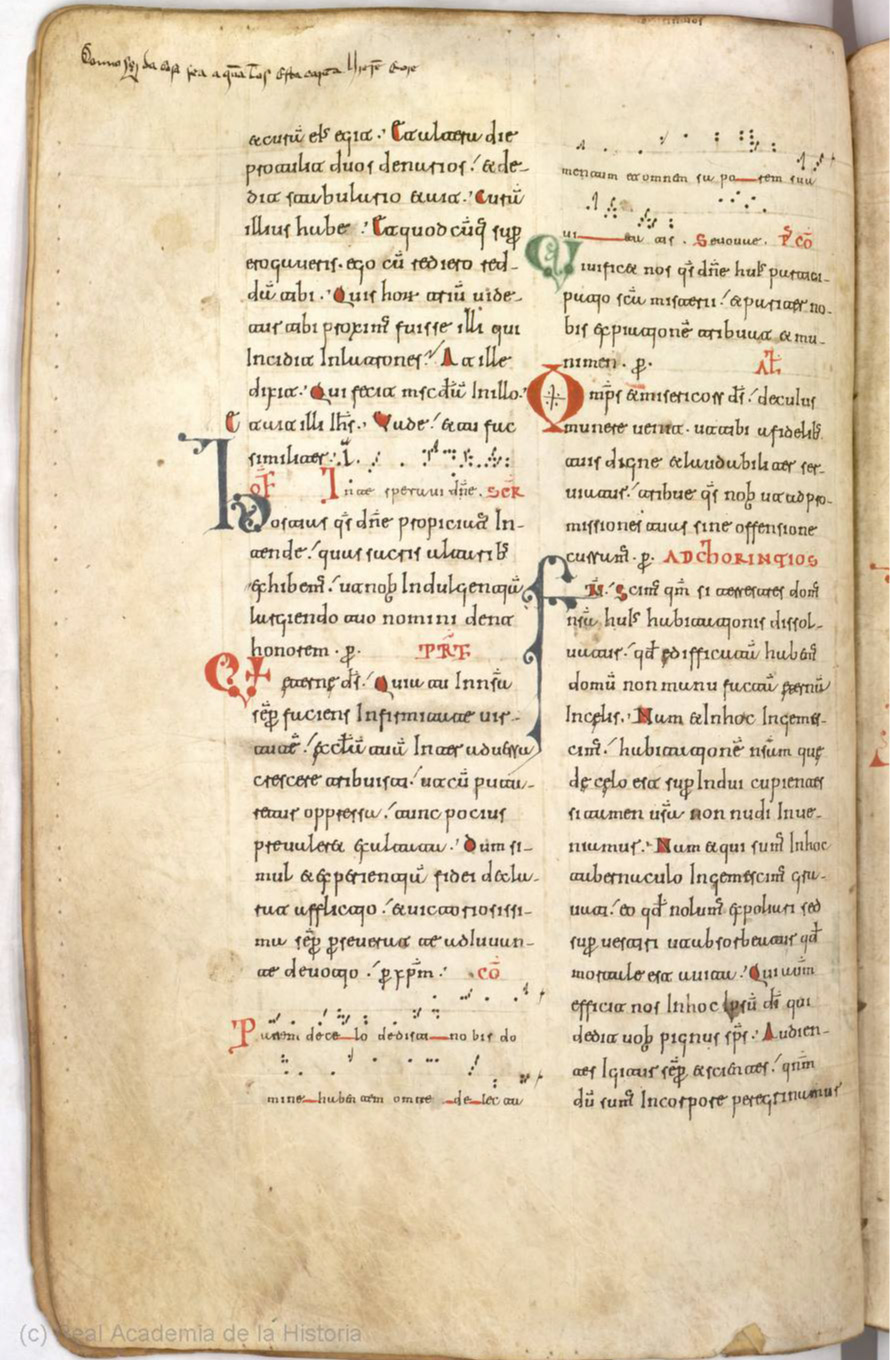 & curā eīs egit. Et altera die
protulit duos denarios. & de-
dit stabulario & ait. Curā
illius habe. Et quodcūq sup
erogaveris. ego cū rediero red-
dā tibi. Quis horū triū vide-
tur tibi proxims fuisse illi qui
Incidit Inlatrones. At ille
dixit. Qui fecit mscdiā Inillo.
Et ait illi Ihs. Vade. & tu fac
similiter.
OF In te speravi dñe. SCR
Hostias qs dñe propicius In-
tende. quas sacris altarib
exhibems. ut nob Indulgentiā
largiendo tuo nomini dent
honorem. p. PRF
eterne ds. Quia tu Innrā
sēp faciens Infirmitate vir-
tutē. ecclām tuā Inter adversa
crescere tribuisti. ut cū puta-
retur oppressa. tunc pocius
prevaleret exaltata. Dum si-
mul & experientiā fidei decla-
rat afflictio. & victoriosissi-
ma sēp perseverat te adiuvan-
te devotio. p xpm. CŌ
Panem de celo dedisti nobis do
mine habentem omne delecta
mentum & omnem saporem sua
vitatis. Sevovae. P CŌ
Vivificet nos qs dñe huis partici-
patio scī misterii. & pariter no-
bis expiationē tribuat & mu-
nimen. p. ALI
Omps & misericors ds. de cuius
munere venit. ut tibi a fidelib
tuis digne & laudabiliter ser-
viatur. tribue qs nob ut ad pro-
missiones tuas sine offensione
curram. p. AD CHORINTIOS
FR. Scims qm si terrestris doms
nrā huis habitationis dissol-
vatur. qd edificatiā habems
domū non manu factā eternā
Incelis. Nam & Inhoc Ingemis-
cims. habitationē nram que
de celo est sup Indui cupientes
si tamen vesti non nudi Inve-
niamus. Nam & qui sums Inhoc
tabernaculo Ingemiscims gra-
vati. eo qd nolums expoliari sed
sup vestiri ut absorbeatur qd
mortale est a vita. Qui autm
efficit nos Inhoc Ipsū ds qui
dedit nob pignus sps. Auden-
tes Igitur sēp. & scientes. qnm
dū sums Incorpore peregrinamur
(c) Real Academia de la Historia